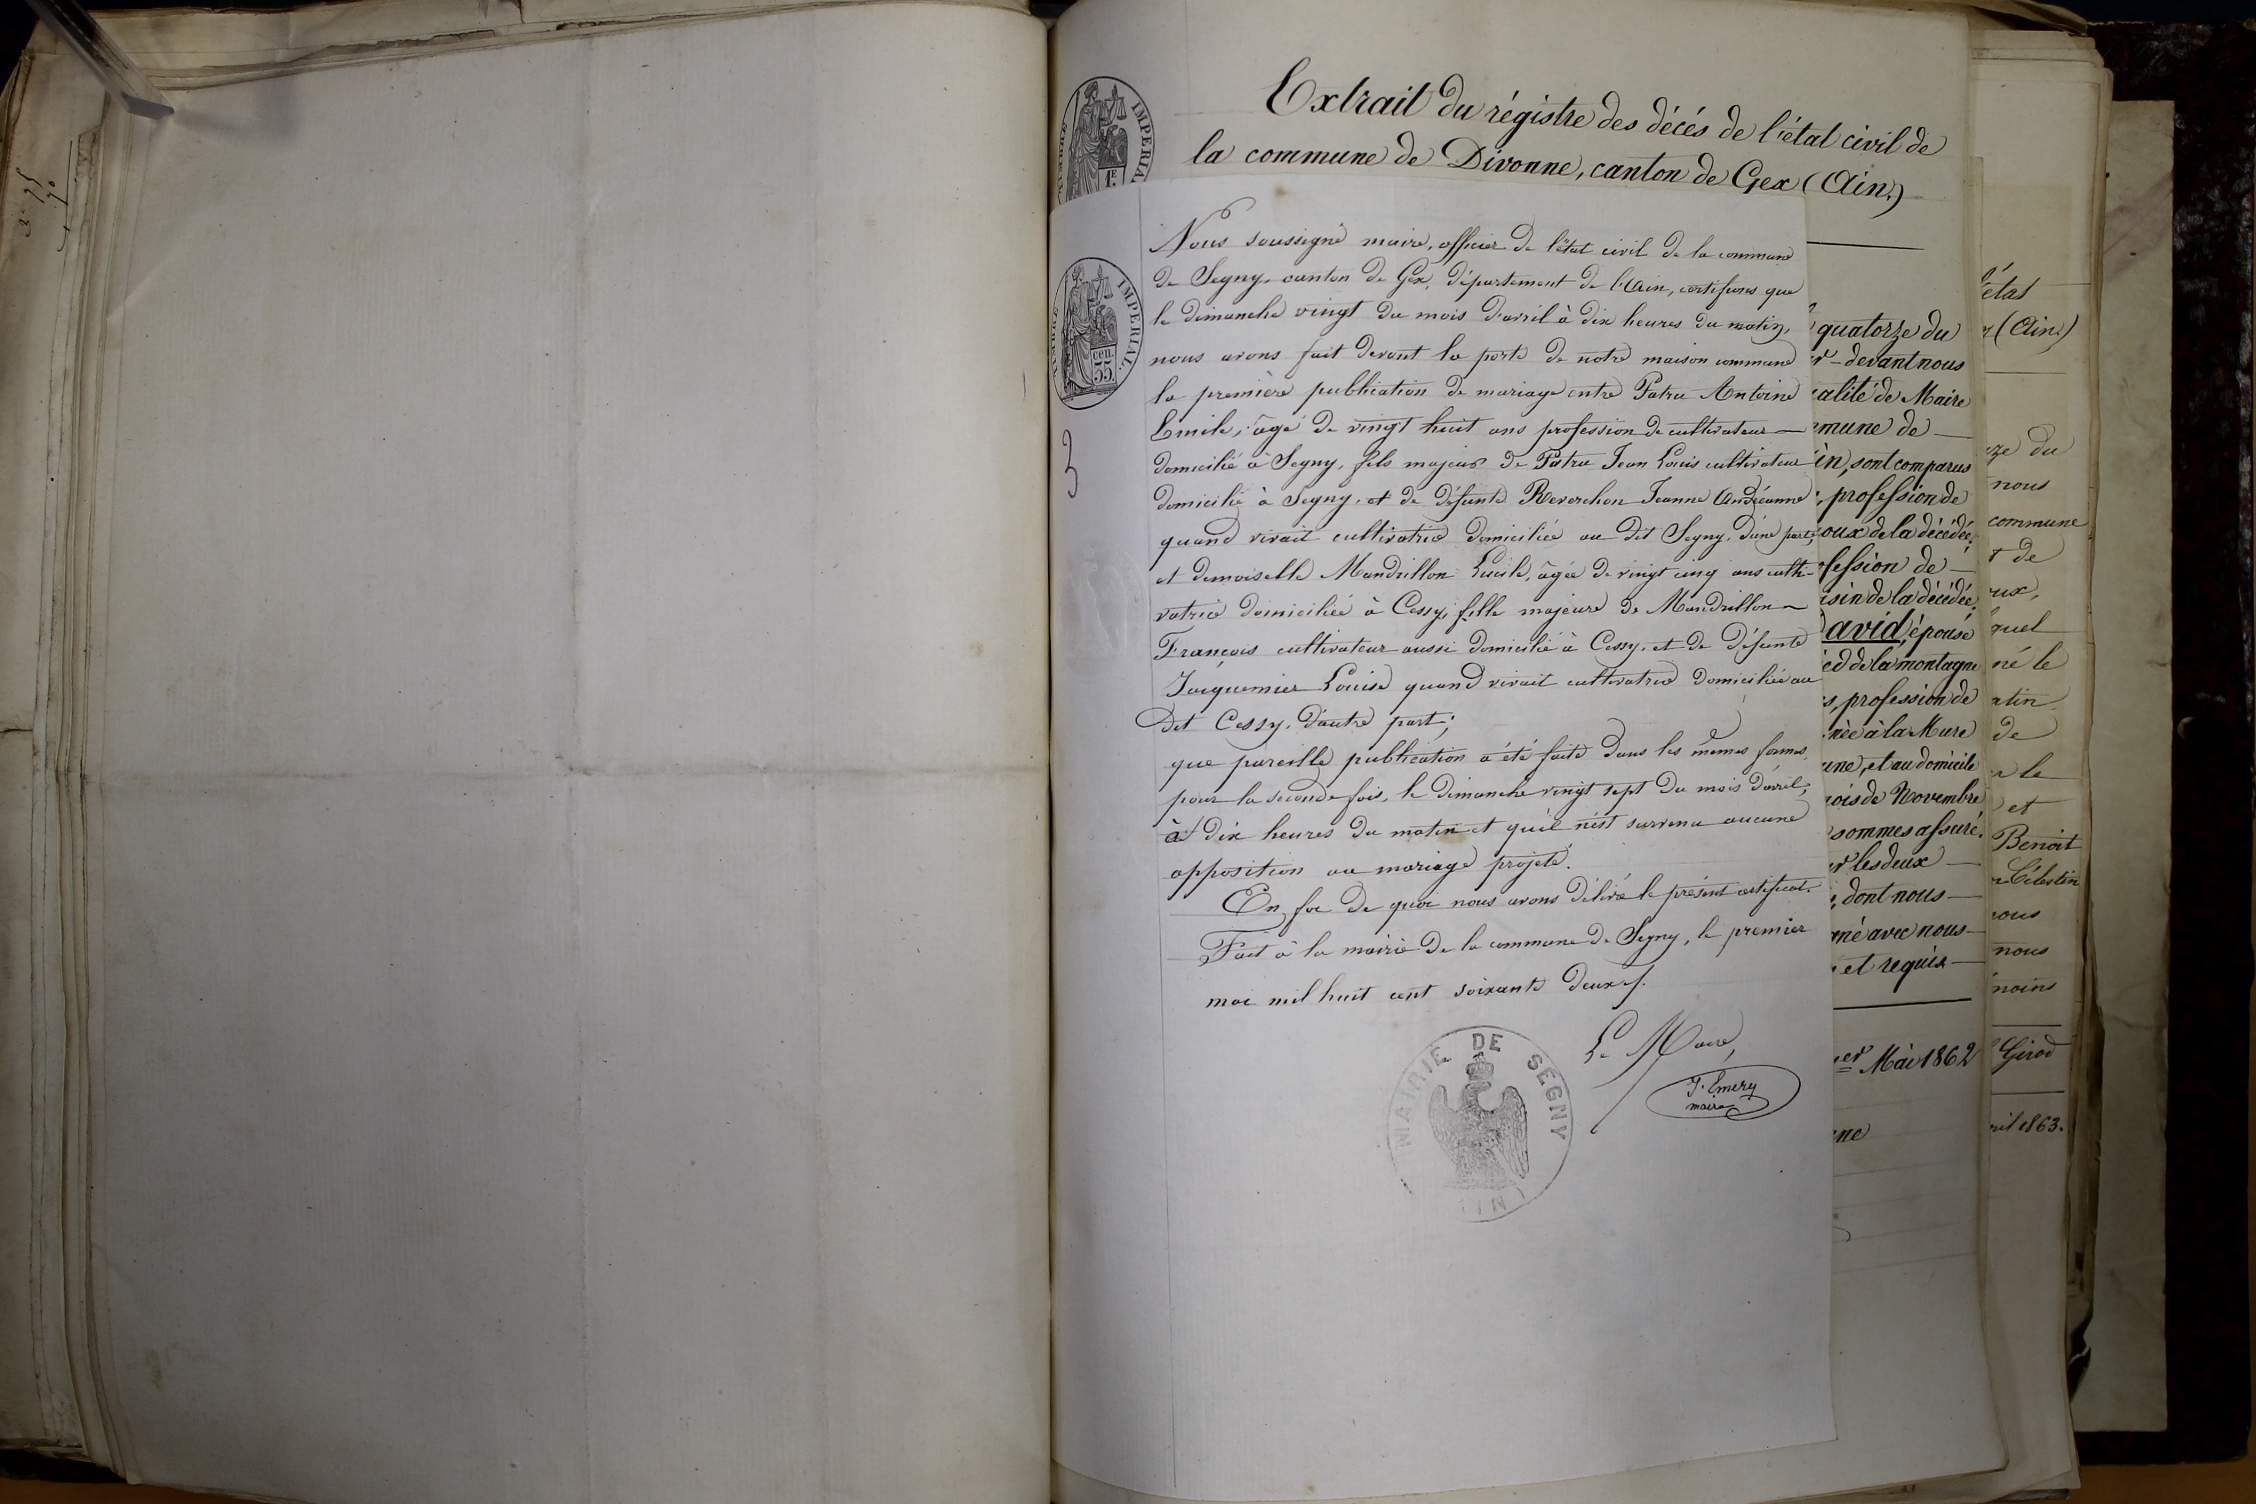 Extrait du régistre des décés de l'état civil de
la commune de Divonne, canton de Gex (Ain.)
TIMBRE IMPERIAL
1.E
TIMBRE IMPERIAL.
cen.
35
3
Nous soussigné maire, officier de l'état civil de la commune
de Segny, canton de Gex, département de l'Ain, certifions que
le dimanche vingt du mois d'avril à dix heures du matin,
nous avons fait devant la porte de notre maison commune
la première publication de mariage entre Patru Antoine
Emile, âgé de vingt huit ans profession de cultivateur
domicilié à Segny, fils majeur de Patru Jean Louis cultivateur
domicilié à Segny, et de défunte Reverchon Jeanne Andréanne
quand vivait cultivatrice domiciliée au dit Segny, d'une part;
et demoiselle Mandrillon Lucile, âgée de vingt cinq ans culti-
vatrice domiciliée à Cessy, fille majeure de Mandrillon
François cultivateur aussi domicilié à Cessy, et de défunte
Jacquemier Louise quand vivait cultivatrice domiciliée au
dit Cessy, d'autre part;
que pareille publication a été faite dans les mêmes formes,
pour la seconde fois, le dimanche vingt sept du mois d'avril,
à dix heures du matin et qu'il n'est survenu aucune
opposition au mariage projeté.
En foi de quoi nous avons délivré le présent certificat.
Fait à la mairie de la commune de Segny, le premier
mai mil huit cent soixante deux /.
Le Maire,
J. Emery
maire
MAIRIE DE SEGNY
(AIN)
quatorze du
devant nous
alité de Maire
mune de
in, sont comparus
profession de
oux de la décédée,
fession de
isin de la décédée,
avid, épouse
ed de la montagne
s, profession de
née à la Mure
une, et au domicile
ois de Novembre
sommes assuré.
les deux
dont nous
gné avec nous
et requis
er Mai 1862
ne
l'état
(Ain)
ze du
nous
commune
t de
oux,
quel
né le
atin
de
le
et
Benoit
Célestin
nous
nous
moins
Girod
ril 1863.